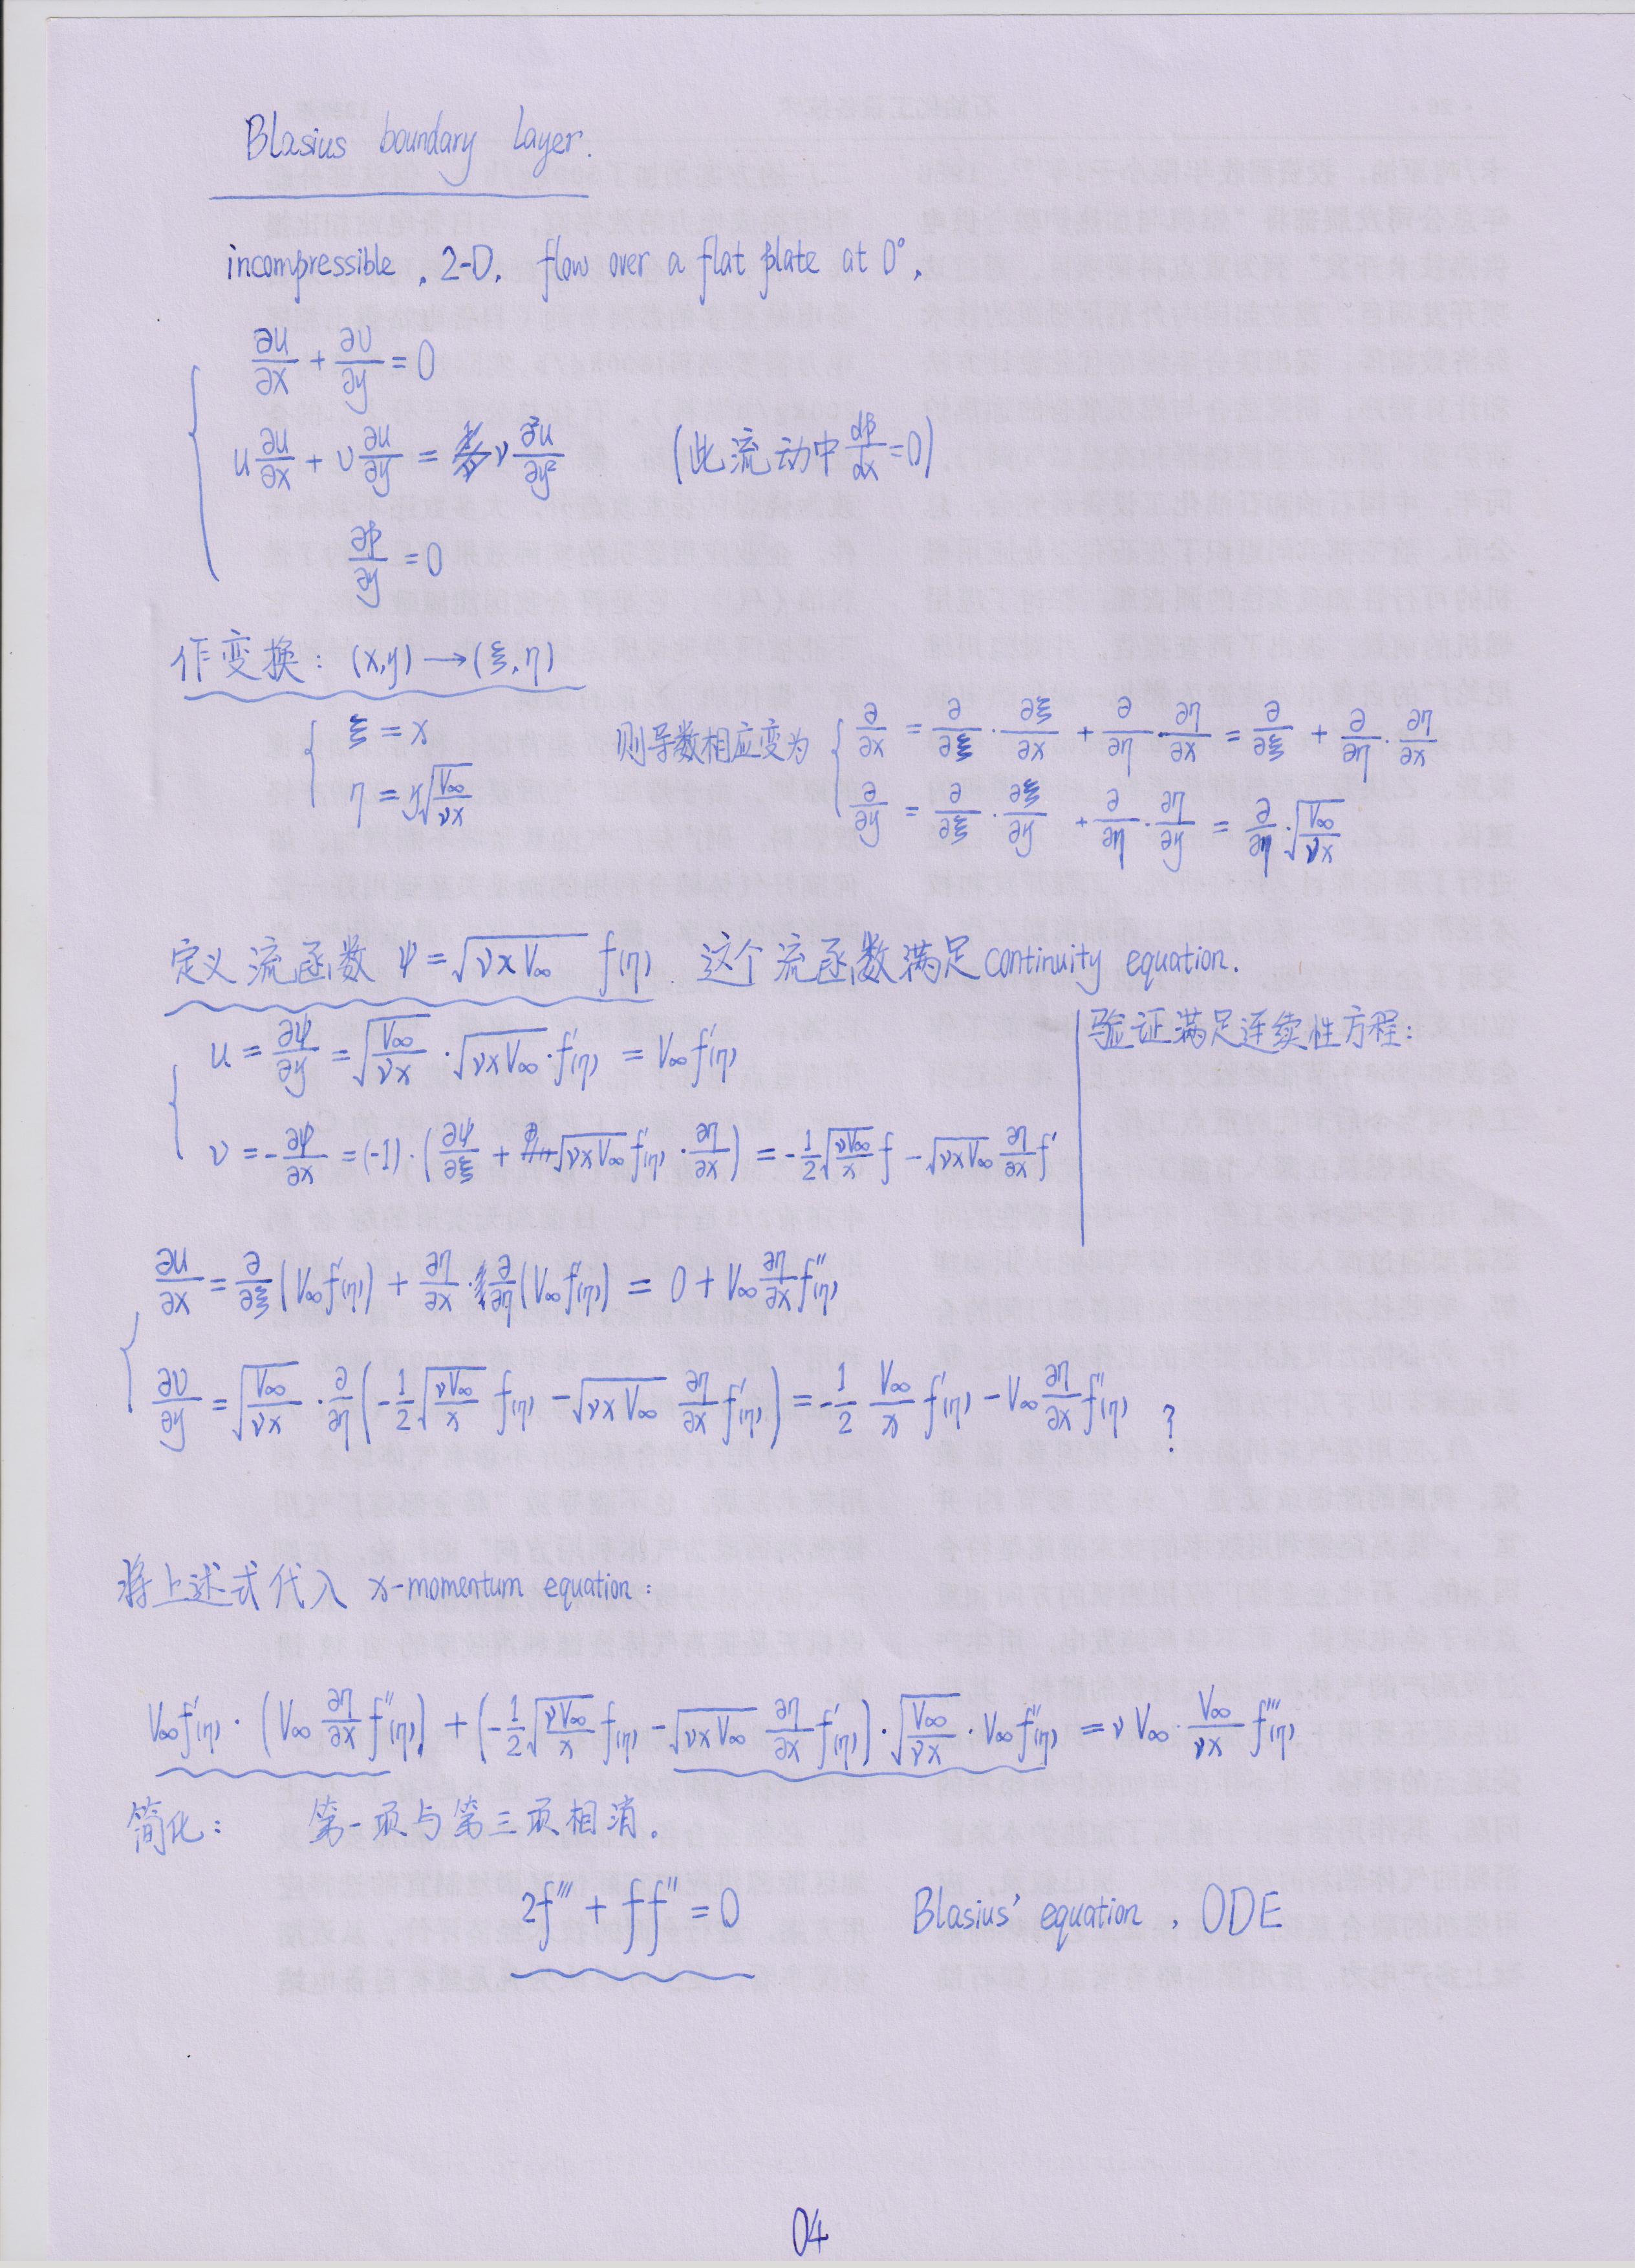 Blasius boundary layer.
incompressible, 2-D, flow over a flat plate at 0°,
∂u/∂x + ∂υ/∂y = 0
u ∂u/∂x + υ ∂u/∂y = ν ∂²u/∂y² (此流动中 dp/dx = 0)
∂p/∂y = 0
作变换: (x,y) → (ξ,η)
ξ = x
η = y√(V∞/νx)
则导数相应变为
∂/∂x = ∂/∂ξ · ∂ξ/∂x + ∂/∂η · ∂η/∂x = ∂/∂ξ + ∂/∂η · ∂η/∂x
∂/∂y = ∂/∂ξ · ∂ξ/∂y + ∂/∂η · ∂η/∂y = ∂/∂η · √(V∞/νx)
定义流函数 ψ = √(νxV∞) f(η) 这个流函数满足continuity equation.
u = ∂ψ/∂y = √(V∞/νx) · √(νxV∞) · f'(η) = V∞f'(η)
υ = -∂ψ/∂x = (-1)·(∂ψ/∂ξ + √(νxV∞) f'(η) · ∂η/∂x) = -1/2 √(νV∞/x) f - √(νxV∞) ∂η/∂x f'
验证满足连续性方程:
∂u/∂x = ∂/∂ξ (V∞f'(η)) + ∂η/∂x · ∂/∂η (V∞f'(η)) = 0 + V∞ ∂η/∂x f''(η)
∂υ/∂y = √(V∞/νx) · ∂/∂η (-1/2 √(νV∞/x) f(η) - √(νxV∞) ∂η/∂x f'(η)) = -1/2 V∞/x f'(η) - V∞ ∂η/∂x f''(η) ?
将上述式代入 x-momentum equation:
V∞f'(η) · (V∞ ∂η/∂x f''(η)) + (-1/2 √(νV∞/x) f(η) - √(νxV∞) ∂η/∂x f'(η)) · √(V∞/νx) · V∞f''(η) = ν V∞ · V∞/νx f'''(η)
简化: 第一项与第三项相消.
2f''' + ff'' = 0 Blasius' equation, ODE
04